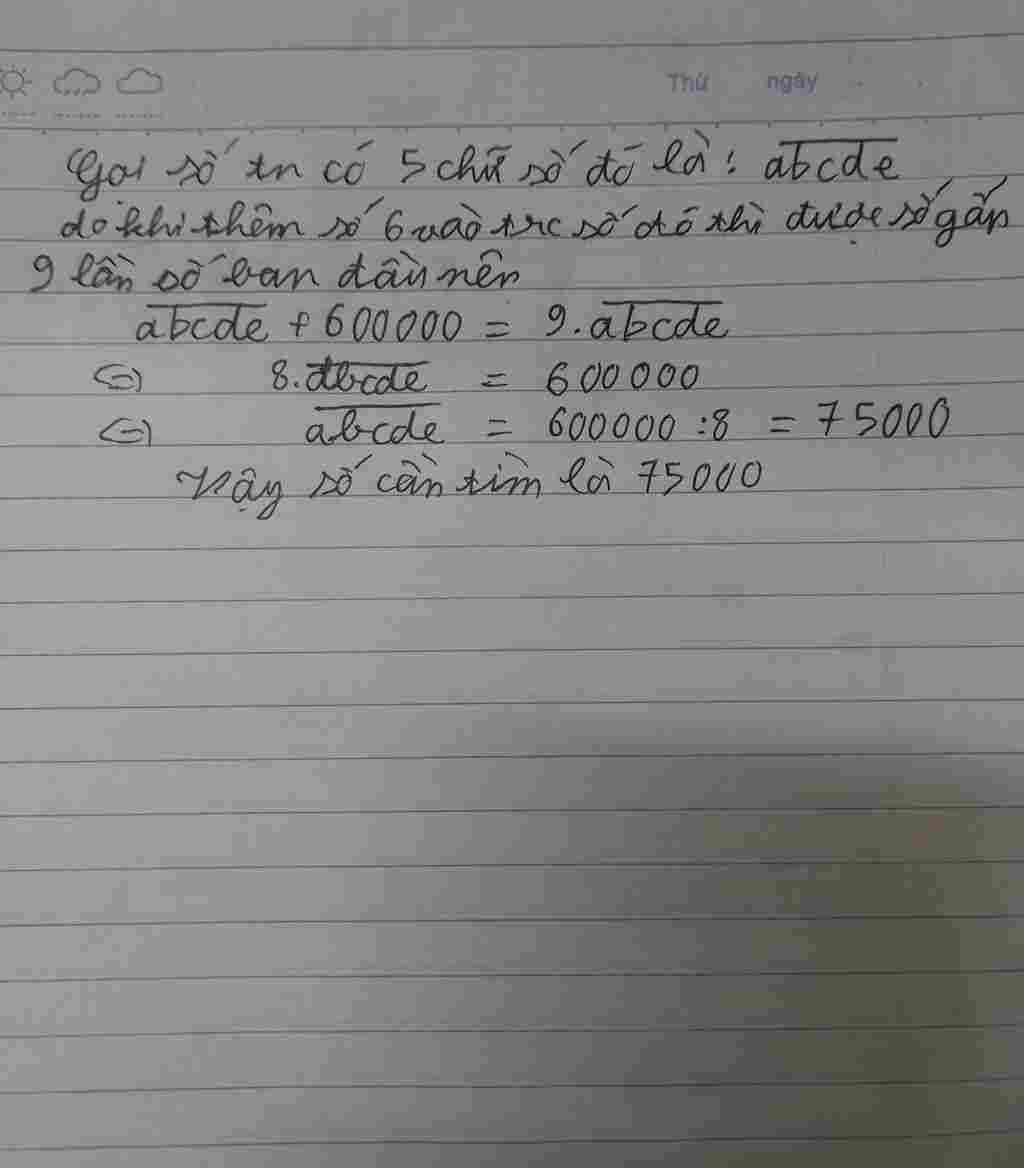 Thứ ngày
Gọi số tn có 5 chữ số đó là: abcde
do khi thêm số 6 vào trc số đó thì được số gấp
9 lần số ban đầu nên
abcde + 600000 = 9.abcde
⇔ 8.abcde = 600000
⇔ abcde = 600000 :8 = 75000
Vậy số cần tìm là 75000